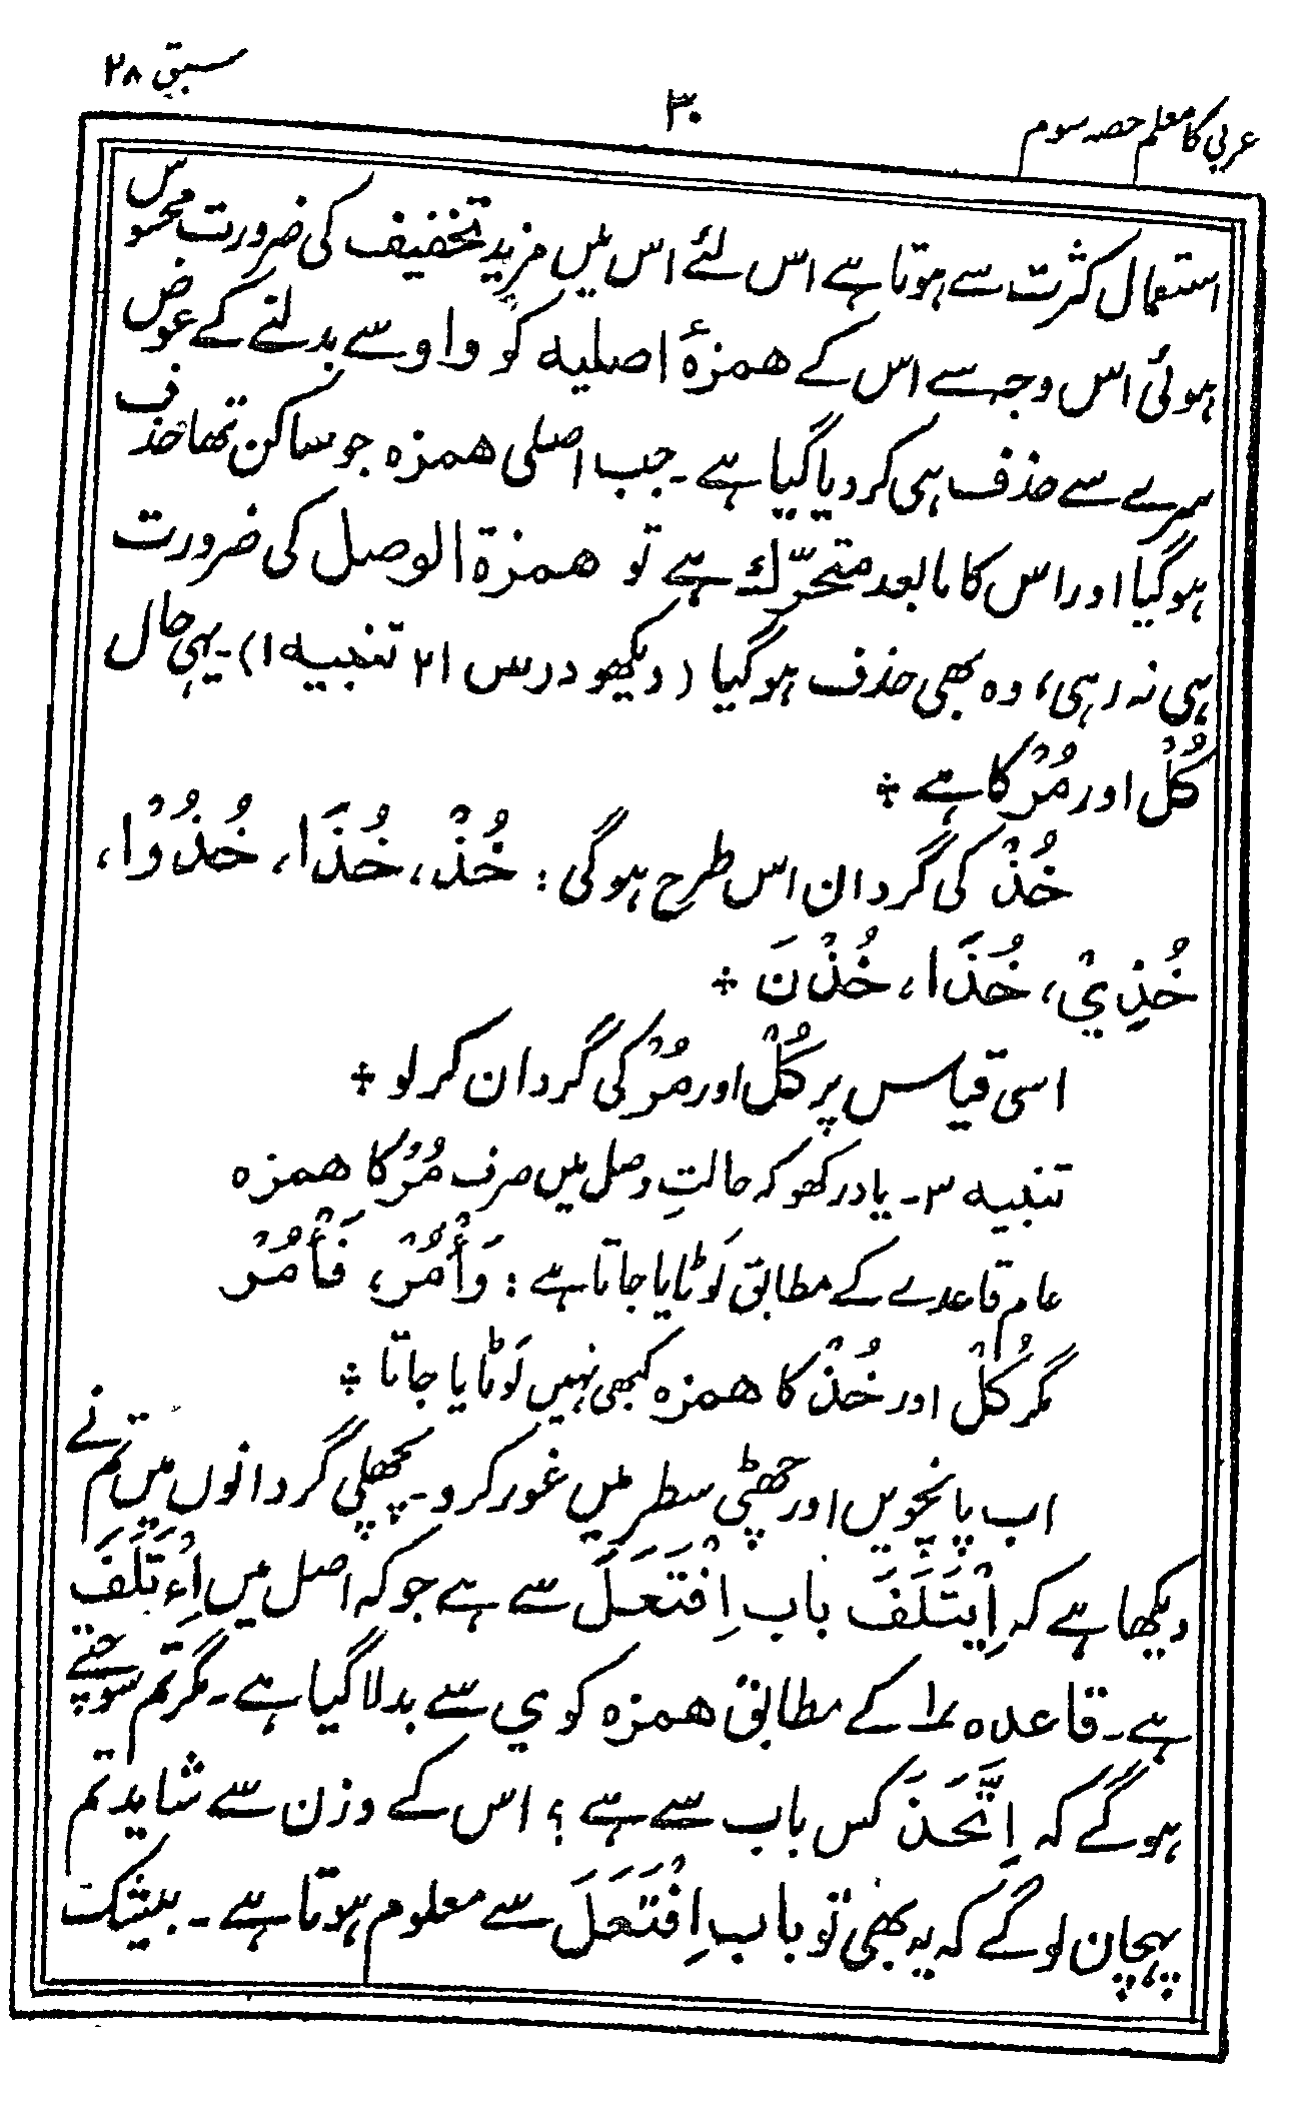 عربی کا معلم حصہ سوم
۳۰
سبق ۲۸
استعمال کثرت سے ہوتا ہے اس لئے اس میں مزید تخفیف کی ضرورت محسوس
ہوئی اس وجہ سے اس کے ھمزۂ اصلیہ کو واو سے بدلنے کے عوض
سرے سے حذف ہی کر دیا گیا ہے۔ جب اصلی ھمزہ جو ساکن تھا حذف
ہوگیا اور اس کا مابعد متحرّک ہے تو ھمزة الوصل کی ضرورت
ہی نہ رہی، وہ بھی حذف ہوگیا (دیکھو درس ۲۱ تنبیہ ۱)۔ یہی حال
کُلْ اور مُرْ کا ہے ÷
خُذْ کی گردان اس طرح ہوگی : خُذْ، خُذَا، خُذُوْا،
خُذِيْ، خُذَا، خُذْنَ ÷
اسی قیاس پر کُلْ اور مُرْ کی گردان کرلو ÷
تنبیہ ۳۔ یاد رکھو کہ حالتِ وصل میں صرف مُرْ کا ھمزہ
عام قاعدے کے مطابق لَوٹایا جاتا ہے : وَأْمُرْ، فَأْمُرْ
مگر کُلْ اور خُذْ کا ھمزہ کبھی نہیں لَوٹایا جاتا ÷
اب پانچویں اور چھٹی سطر میں غور کرو۔ پچھلی گردانوں میں تم نے
دیکھا ہے کہ اِيْتَلَفَ باب اِفْتَعَلَ سے ہے جو کہ اصل میں اِءْتَلَفَ
ہے۔ قاعدہ ۱ کے مطابق ھمزہ کو ي سے بدلا گیا ہے۔ مگر تم سوچتے
ہوگے کہ اِتَّخَذَ کس باب سے ہے ؟ اس کے وزن سے شاید تم
پہچان لوگے کہ یہ بھی تو باب اِفْتَعَلَ سے معلوم ہوتا ہے ۔ بیشک